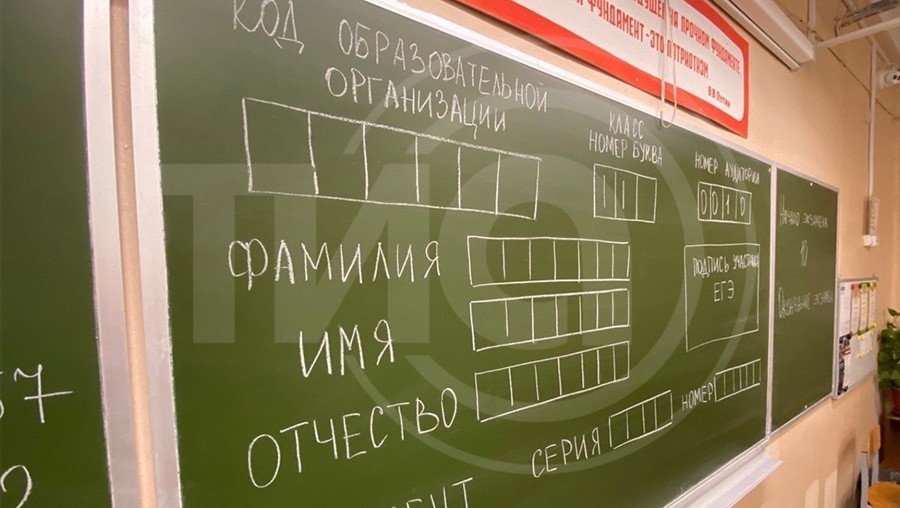 НА ПРОЧНОМ ФУНДАМЕНТЕ
ФУНДАМЕНТ - ЭТО ПАТРИОТИЗМ
В.В. Путин
КОД ОБРАЗОВАТЕЛЬНОЙ
ОРГАНИЗАЦИИ
КЛАСС
НОМЕР БУКВА
НОМЕР АУДИТОРИИ
0010
ФАМИЛИЯ
ПОДПИСЬ УЧАСТНИКА
ЕГЭ
ИМЯ
ОТЧЕСТВО
СЕРИЯ
НОМЕР
НАЧАЛО ЭКЗАМЕНА
10
ОКОНЧАНИЕ ЭКЗАМЕНА
57
2